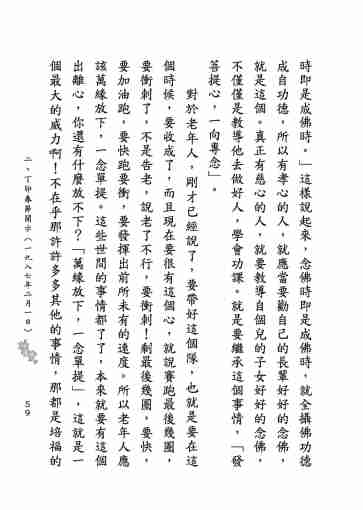 時即是成佛時。」這樣說起來，念佛時即是成佛時，就全攝佛功德
成自功德，所以有孝心的人，就應當要勸自己的長輩好好的念佛，
就是這個。真正有慈心的人，就要教導自個兒的子女好好的念佛，
不僅僅是教導他去做好人，學會功課。就是要繼承這個事情，「發
菩提心，一向專念」。
對於老年人，剛才已經說了，要帶好這個隊，也就是要在這
個時候，要收成了，而且現在要很有這個心，就說賽跑最後幾圈，
要衝刺了。不是告老，說老了不行，要衝刺！剩最後幾圈，要快，
要加油跑，要快跑要衝，要發揮出前所未有的速度。所以老年人應
該萬緣放下，一念單提。這些世間的事情都了了，本來就要有這個
出離心，你還有什麼放不下？「萬緣放下，一念單提」，這就是一
個最大的威力啊！不在乎那許許多多其他的事情，那都是培福的
二、丁卯春節開示（一九八七年二月一日）
59